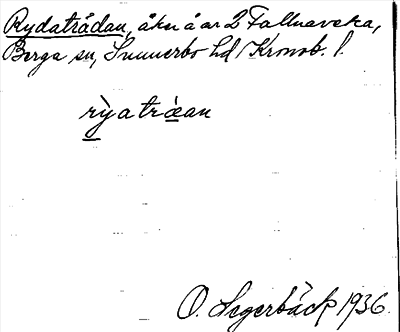 Rydaträdan, åker å ar 2 Fallnaveka,
Berga sn, Sunnerbo hd Kronob. l.
rỳaträ̀an
O. Segerbäck 1936